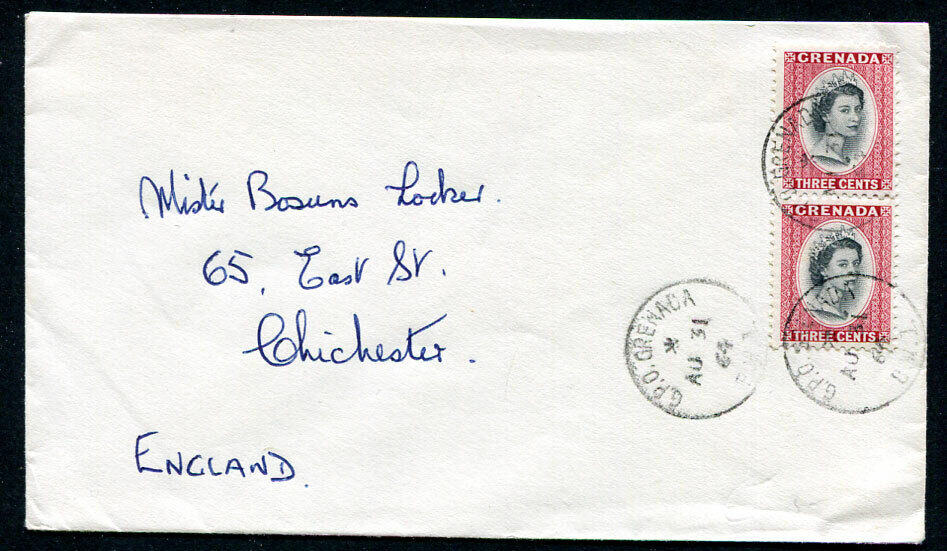 GRENADA
THREE CENTS
GRENADA
THREE CENTS
Mister Bosuns Locker.
65, East St.
Chichester.
ENGLAND.
G.P.O. GRENADA
*
AU 31
64
G.P.O.
AU 31
64